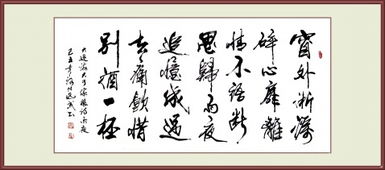 窗外淅瀝
碎心扉離
情不語斷
思歸雨夜
追憶成過
去痛飲惜
别酒一杯